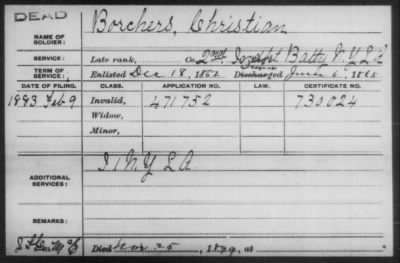 DEAD
NAME OF SOLDIER: Borchers, Christian
SERVICE: Late rank, Co. 2nd, Batty N.Y.L.A
TERM OF SERVICE: Enlisted Dec 18, 1862 Discharged June 6, 1865
DATE OF FILING. CLASS. APPLICATION NO. LAW. CERTIFICATE NO.
1883 Feb 9 Invalid, 471752 730024
Widow,
Minor,
ADDITIONAL SERVICES: I 1 N.Y L A
REMARKS:
Died Nov. 25, 1889, at